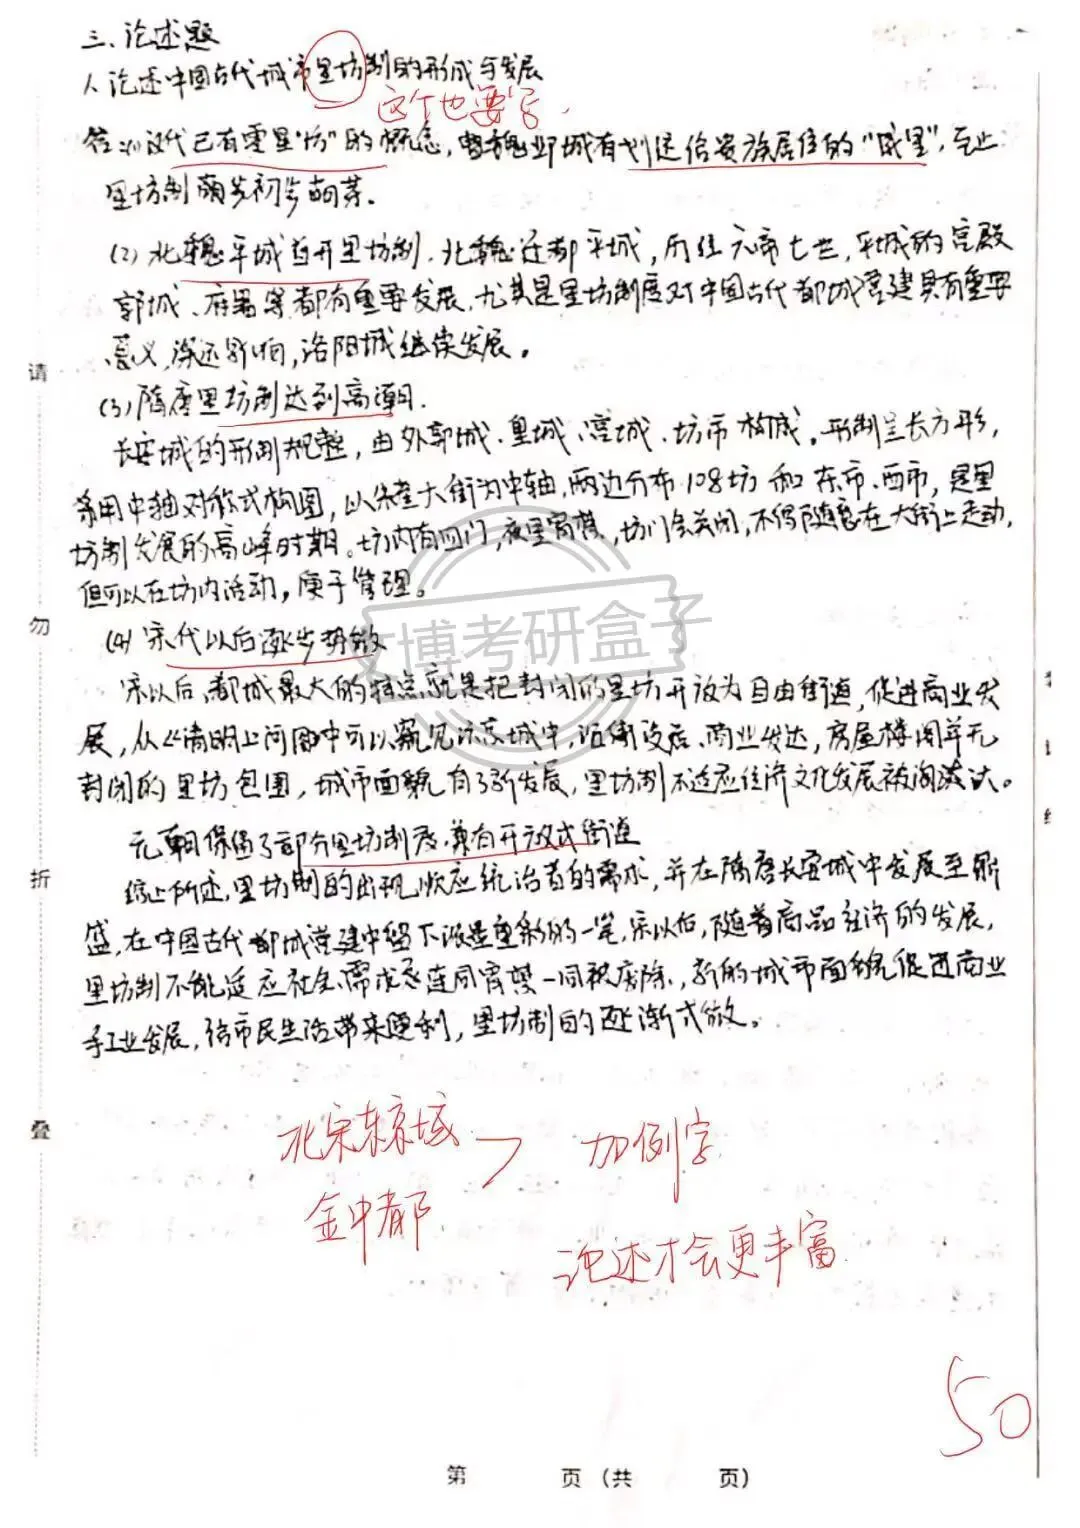 三、论述题
1、论述中国古代城市里坊制的形成与发展
这个也要写.
答:(1)汉代已有零星"坊"的概念,曹魏邺城有划送给贵族居住的"戚里",至此
里坊制初步萌芽.
(2)北魏平城首开里坊制.北魏迁都平城,历经元帝七世,平城的宫殿
郭城、府署等都有重要发展,尤其是里坊制度对中国古代都城营建具有重要
意义,深远影响,洛阳城继续发展。
(3)隋唐里坊制达到高潮.
长安城的形制规整,由外郭城、皇城、宫城、坊市构成。形制呈长方形,
采用中轴对称式构图,以朱雀大街为中轴,两边分布108坊和东市、西市,是里
坊制发展的高峰时期。坊内有四门,夜里宵禁,坊门会关闭,不得随意在大街上走动,
但可以在坊内活动,便于管理。
文博考研盒子
(4)宋代以后逐步
宋以后,都城最大的特点就是把封闭的里坊开放为自由街道,促进商业发
展,从《清明上河图中可以窥见汴京城中,沿街设店、商业发达,房屋楼阁并无
封闭的里坊包围,城市面貌有了新发展,里坊制不适应经济文化发展被淘汰。
元朝保留了部分里坊制度,兼有开放式街道
综上所述,里坊制的出现顺应统治者的需求,并在隋唐长安城中发展至鼎
盛,在中国古代都城营建中留下浓墨重彩的一笔,宋以后,随着商品经济的发展,
里坊制不能适应社会需求连同宵禁一同被废除,新的城市面貌促进商业
手工业发展,给市民生活带来便利,里坊制的逐渐式微。
北宋东京城
加例字
金中都.
论述才会更丰富.
50
请
勿
折
叠
第 页(共 页)